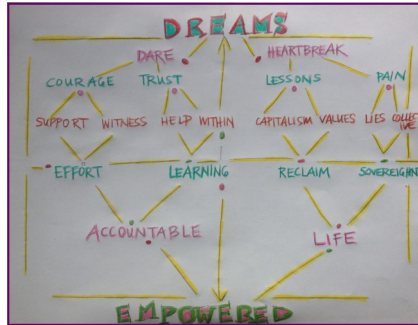 DREAMS
DARE HEARTBREAK
COURAGE TRUST LESSONS PAIN
SUPPORT WITNESS HELP WITHIN CAPITALISM VALUES LIES COLLECTIVE
EFFORT LEARNING RECLAIM SOVEREIGN
ACCOUNTABLE LIFE
EMPOWERED